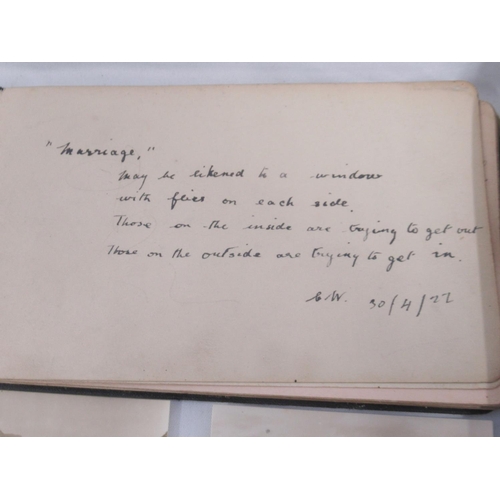 "Marriage,"
May be likened to a window
with flies on each side.
Those on the inside are trying to get out
Those on the outside are trying to get in.
30/4/22